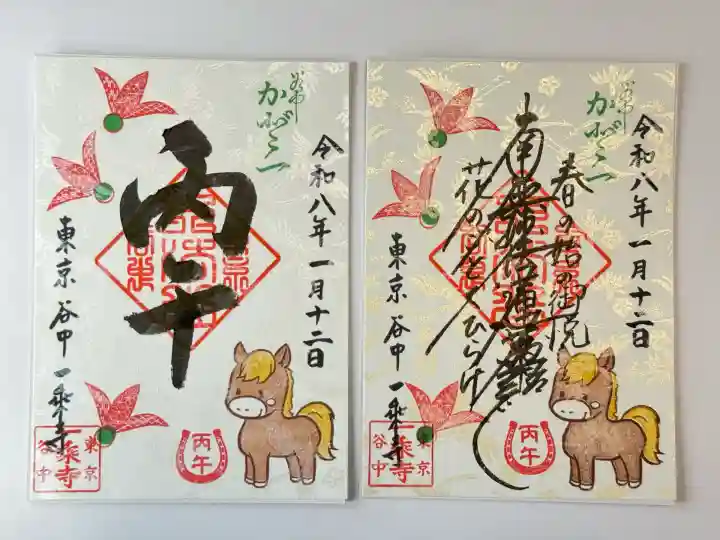 谷中
かざぐるま
令和八年一月十二日
丙午
東京 谷中 一乗寺
東京
谷中
一乗寺
丙午
谷中
令和八年一月十二日
春の始の御悦
南無妙法蓮華経
花のごとくひらけ
東京 谷中 一乗寺
東京
谷中
一乗寺
丙午